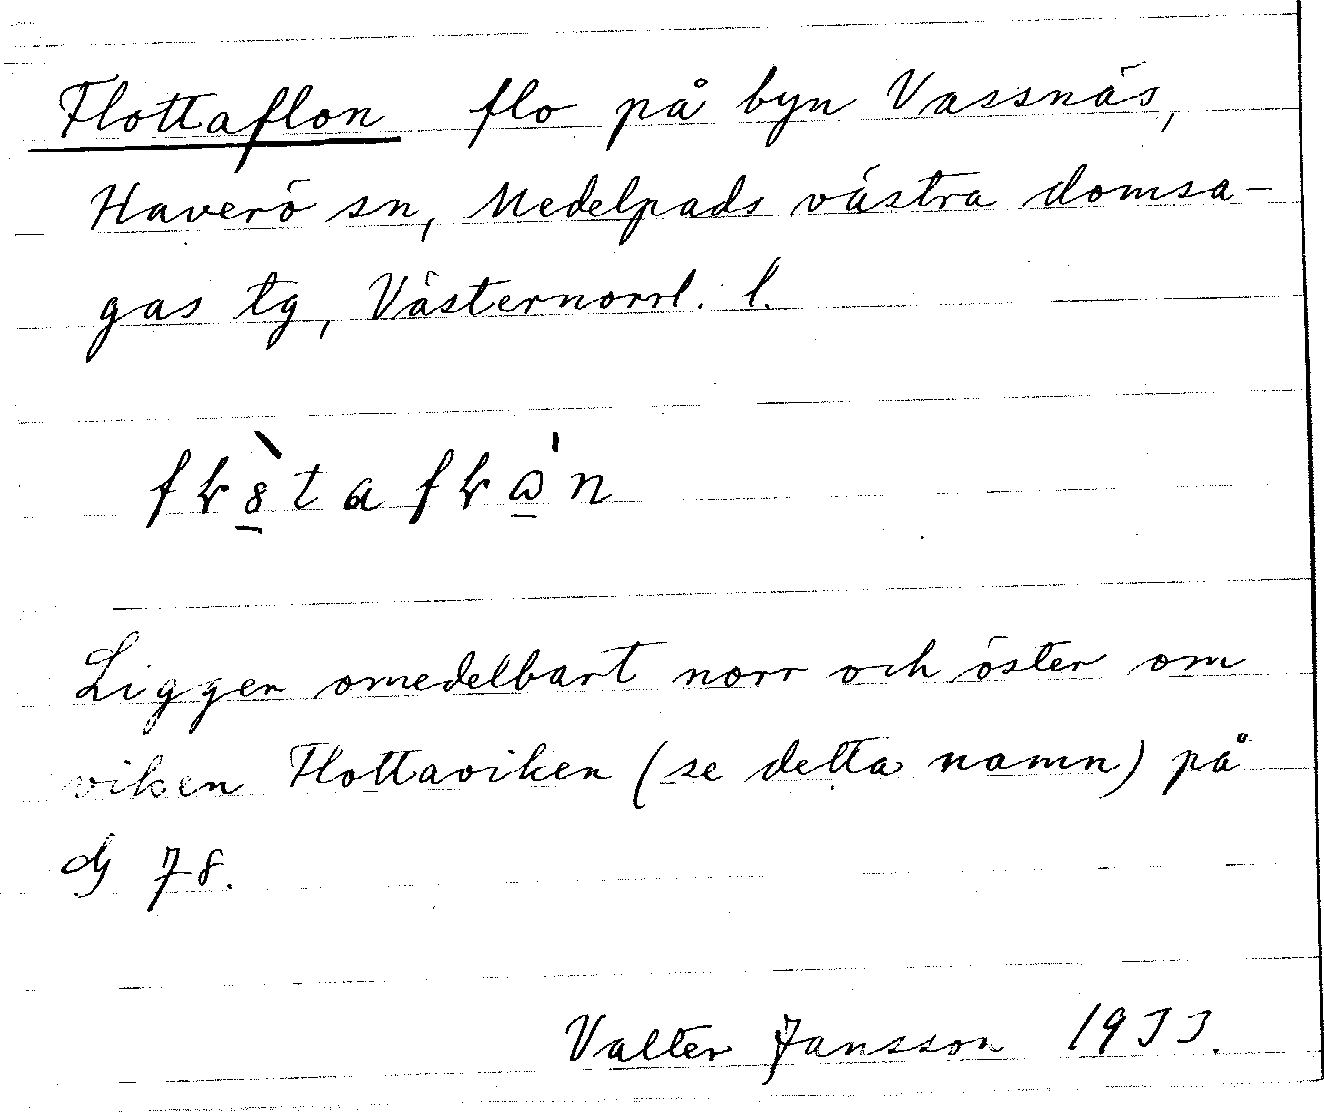 Flottaflon flo på byn Vassnäs,
Haverö sn, Medelpads västra domsa-
gas tg, Västernorrl. l.
Ligger omedelbart norr och öster om
viken Flottaviken (se detta namn) på
dj 78.
Valter Jansson 1933.